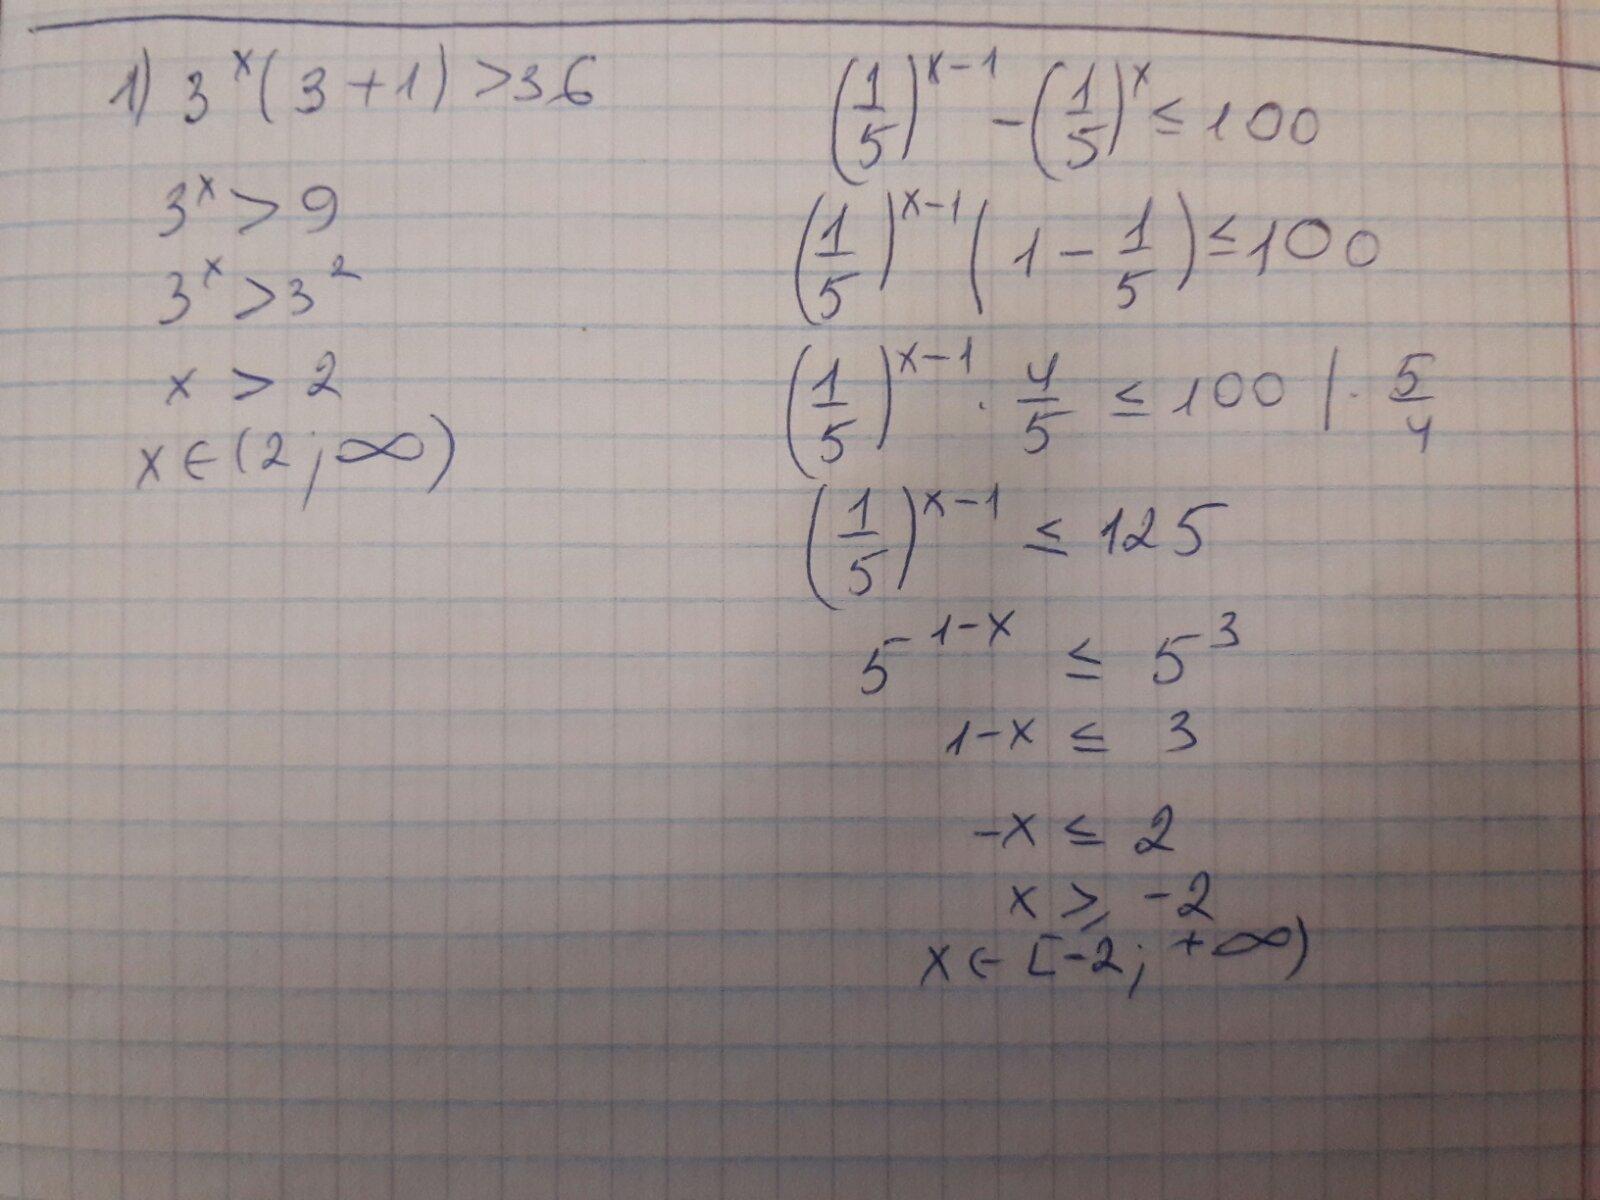 1) 3^x(3+1)>36
3^x>9
3^x>3^2
x>2
x∈(2;∞)
(1/5)^{x-1}-(1/5)^x≤100
(1/5)^{x-1}(1-1/5)≤100
(1/5)^{x-1}·4/5≤100 |·5/4
(1/5)^{x-1}≤125
5^{1-x}≤5^3
1-x≤3
-x≤2
x≥-2
x∈[-2;+∞)